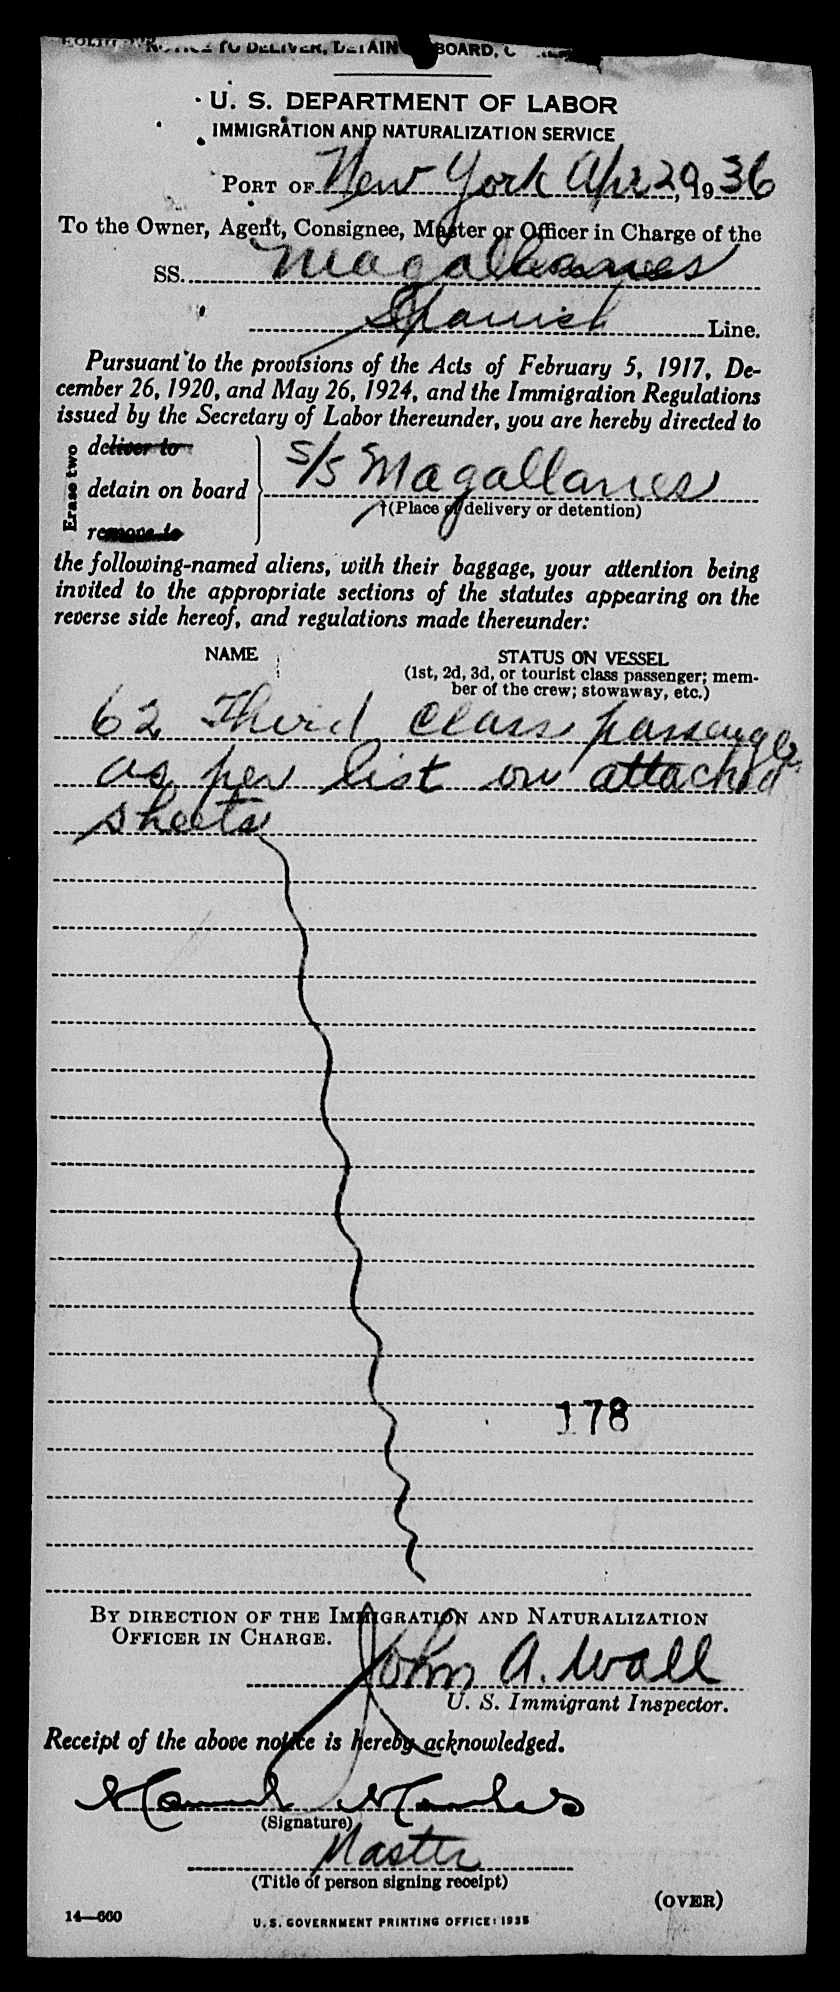 NOTICE TO DELIVER, DETAIN BOARD,
U. S. DEPARTMENT OF LABOR
IMMIGRATION AND NATURALIZATION SERVICE
PORT OF New York Apr 29, 1936
To the Owner, Agent, Consignee, Master or Officer in Charge of the
SS. Magallanes
Spanish Line.
Pursuant to the provisions of the Acts of February 5, 1917, De-
cember 26, 1920, and May 26, 1924, and the Immigration Regulations
issued by the Secretary of Labor thereunder, you are hereby directed to
Erase two
deliver to
detain on board
remove to
S/S Magallanes
(Place of delivery or detention)
the following-named aliens, with their baggage, your attention being
invited to the appropriate sections of the statutes appearing on the
reverse side hereof, and regulations made thereunder:
NAME STATUS ON VESSEL
(1st, 2d, 3d, or tourist class passenger; mem-
ber of the crew; stowaway, etc.)
62 Third Class passengers
as per list on attached
sheets
178
BY DIRECTION OF THE IMMIGRATION AND NATURALIZATION
OFFICER IN CHARGE.
John A. Wall
U. S. Immigrant Inspector.
Receipt of the above notice is hereby acknowledged.
Manuel Morales
(Signature)
Master
(Title of person signing receipt)
(OVER)
14—660 U. S. GOVERNMENT PRINTING OFFICE: 1935